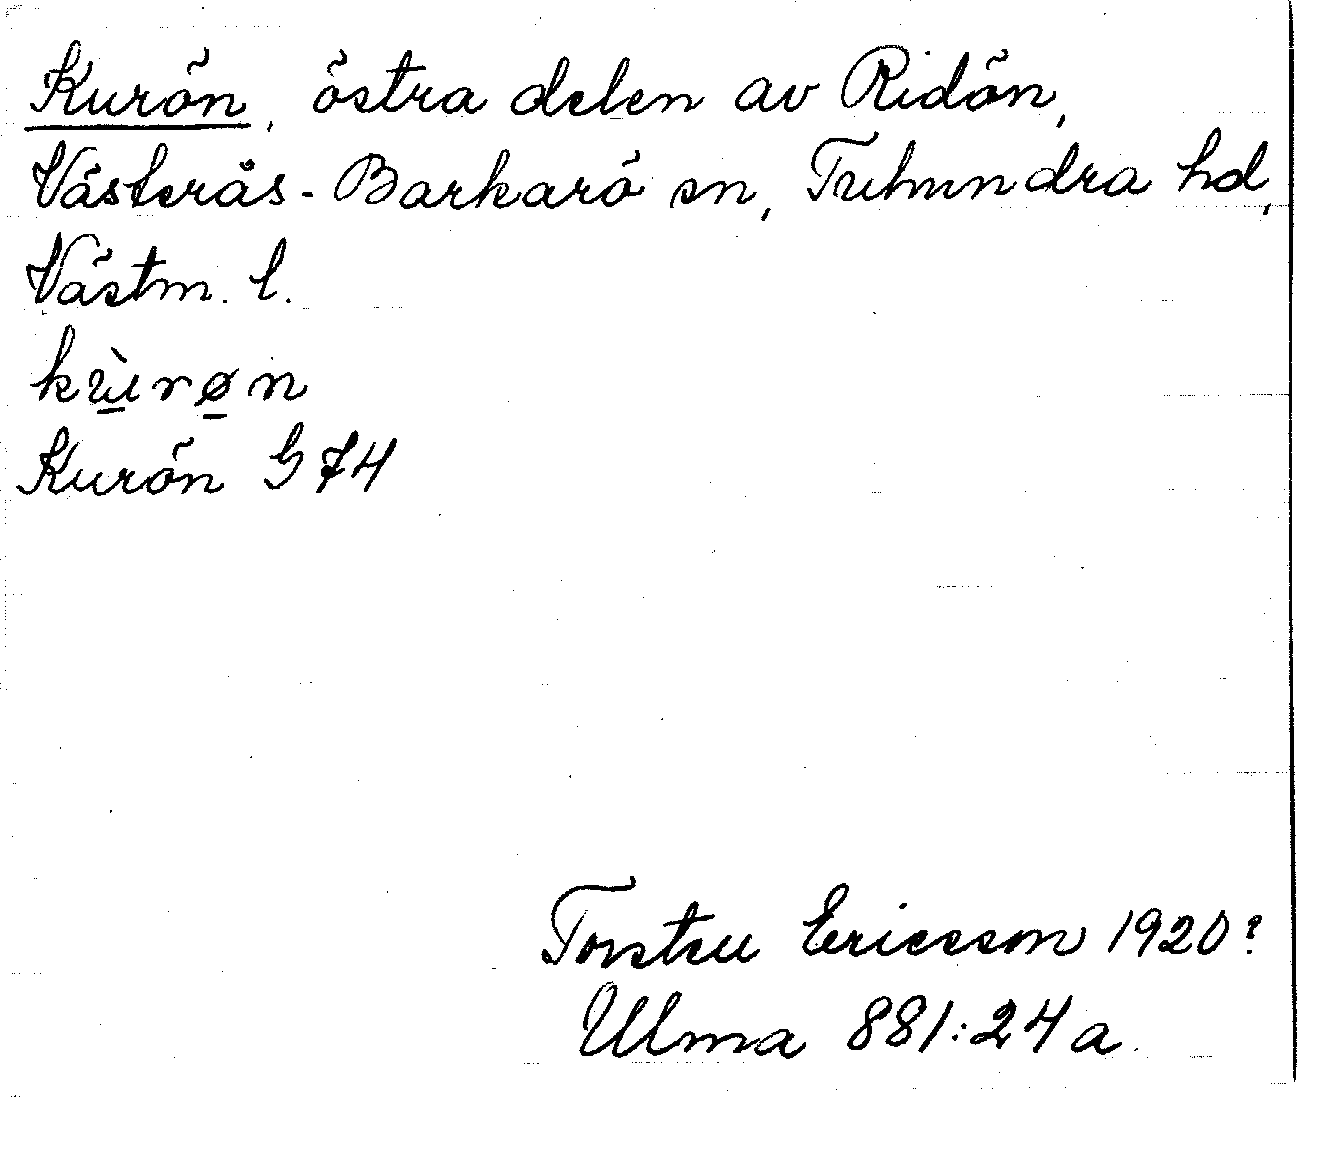 Kurön, östra delen av Ridön,
Västerås-Barkarö sn, Tuhundra hd,
Västm. l.
kùrøn
Kurön G 74
Torsten Ericsson 1920?
Ulma 881:24a